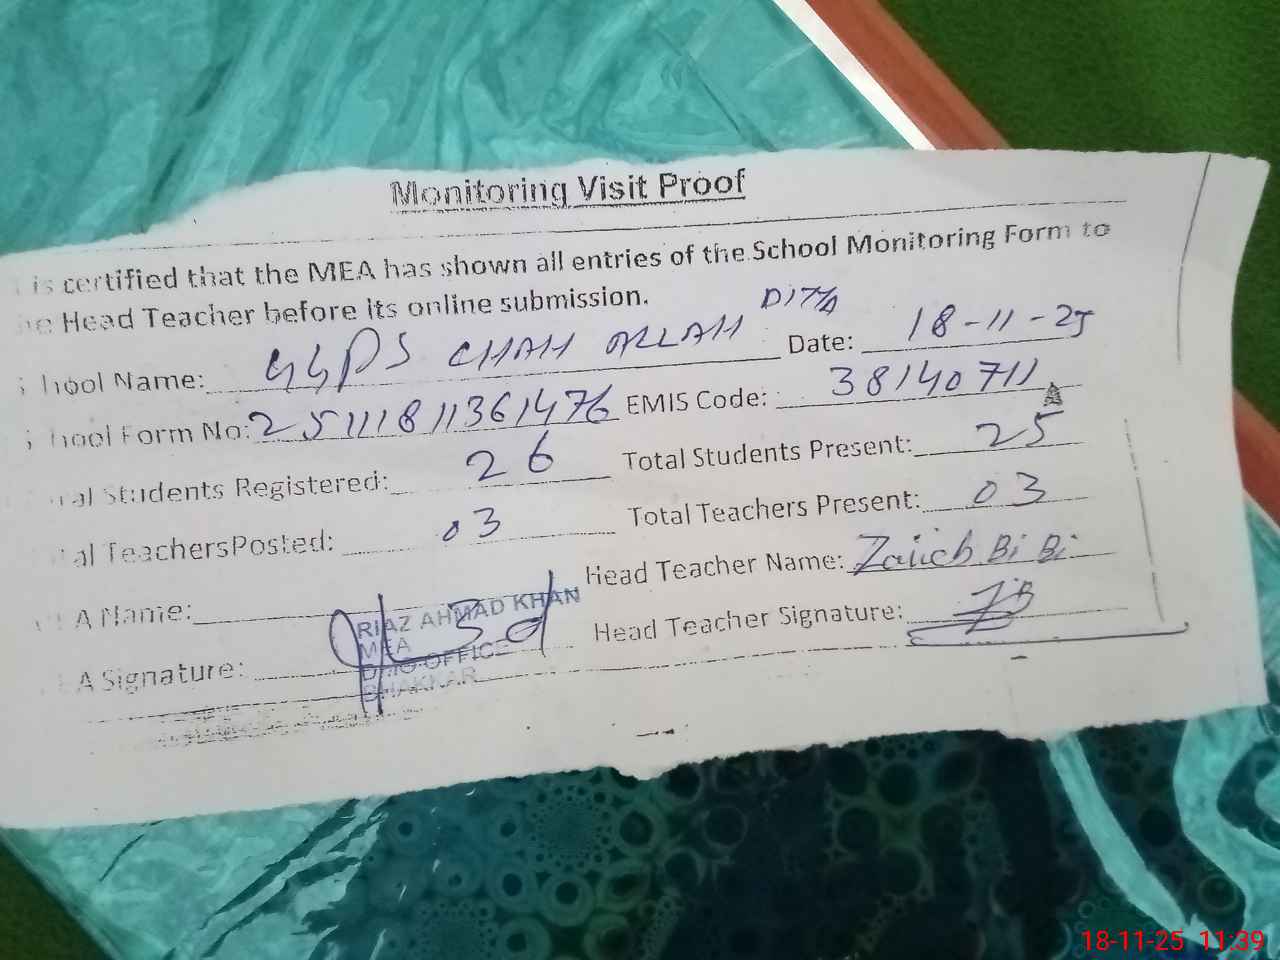 Monitoring Visit Proof
is certified that the MEA has shown all entries of the School Monitoring Form to
Head Teacher before its online submission.
hool Name: GGPS CHAH ALLAH DITTA Date: 18-11-25
hool Form No: 25111811361476 EMIS Code: 38140711
al Students Registered: 26 Total Students Present: 25
al TeachersPosted: 03 Total Teachers Present: 03
A Name: Head Teacher Name: Bi Bi
RIAZ AHMAD KHAN
MEA
A Signature: DMO OFFICE Head Teacher Signature:
BHAKKAR
18-11-25 11:39